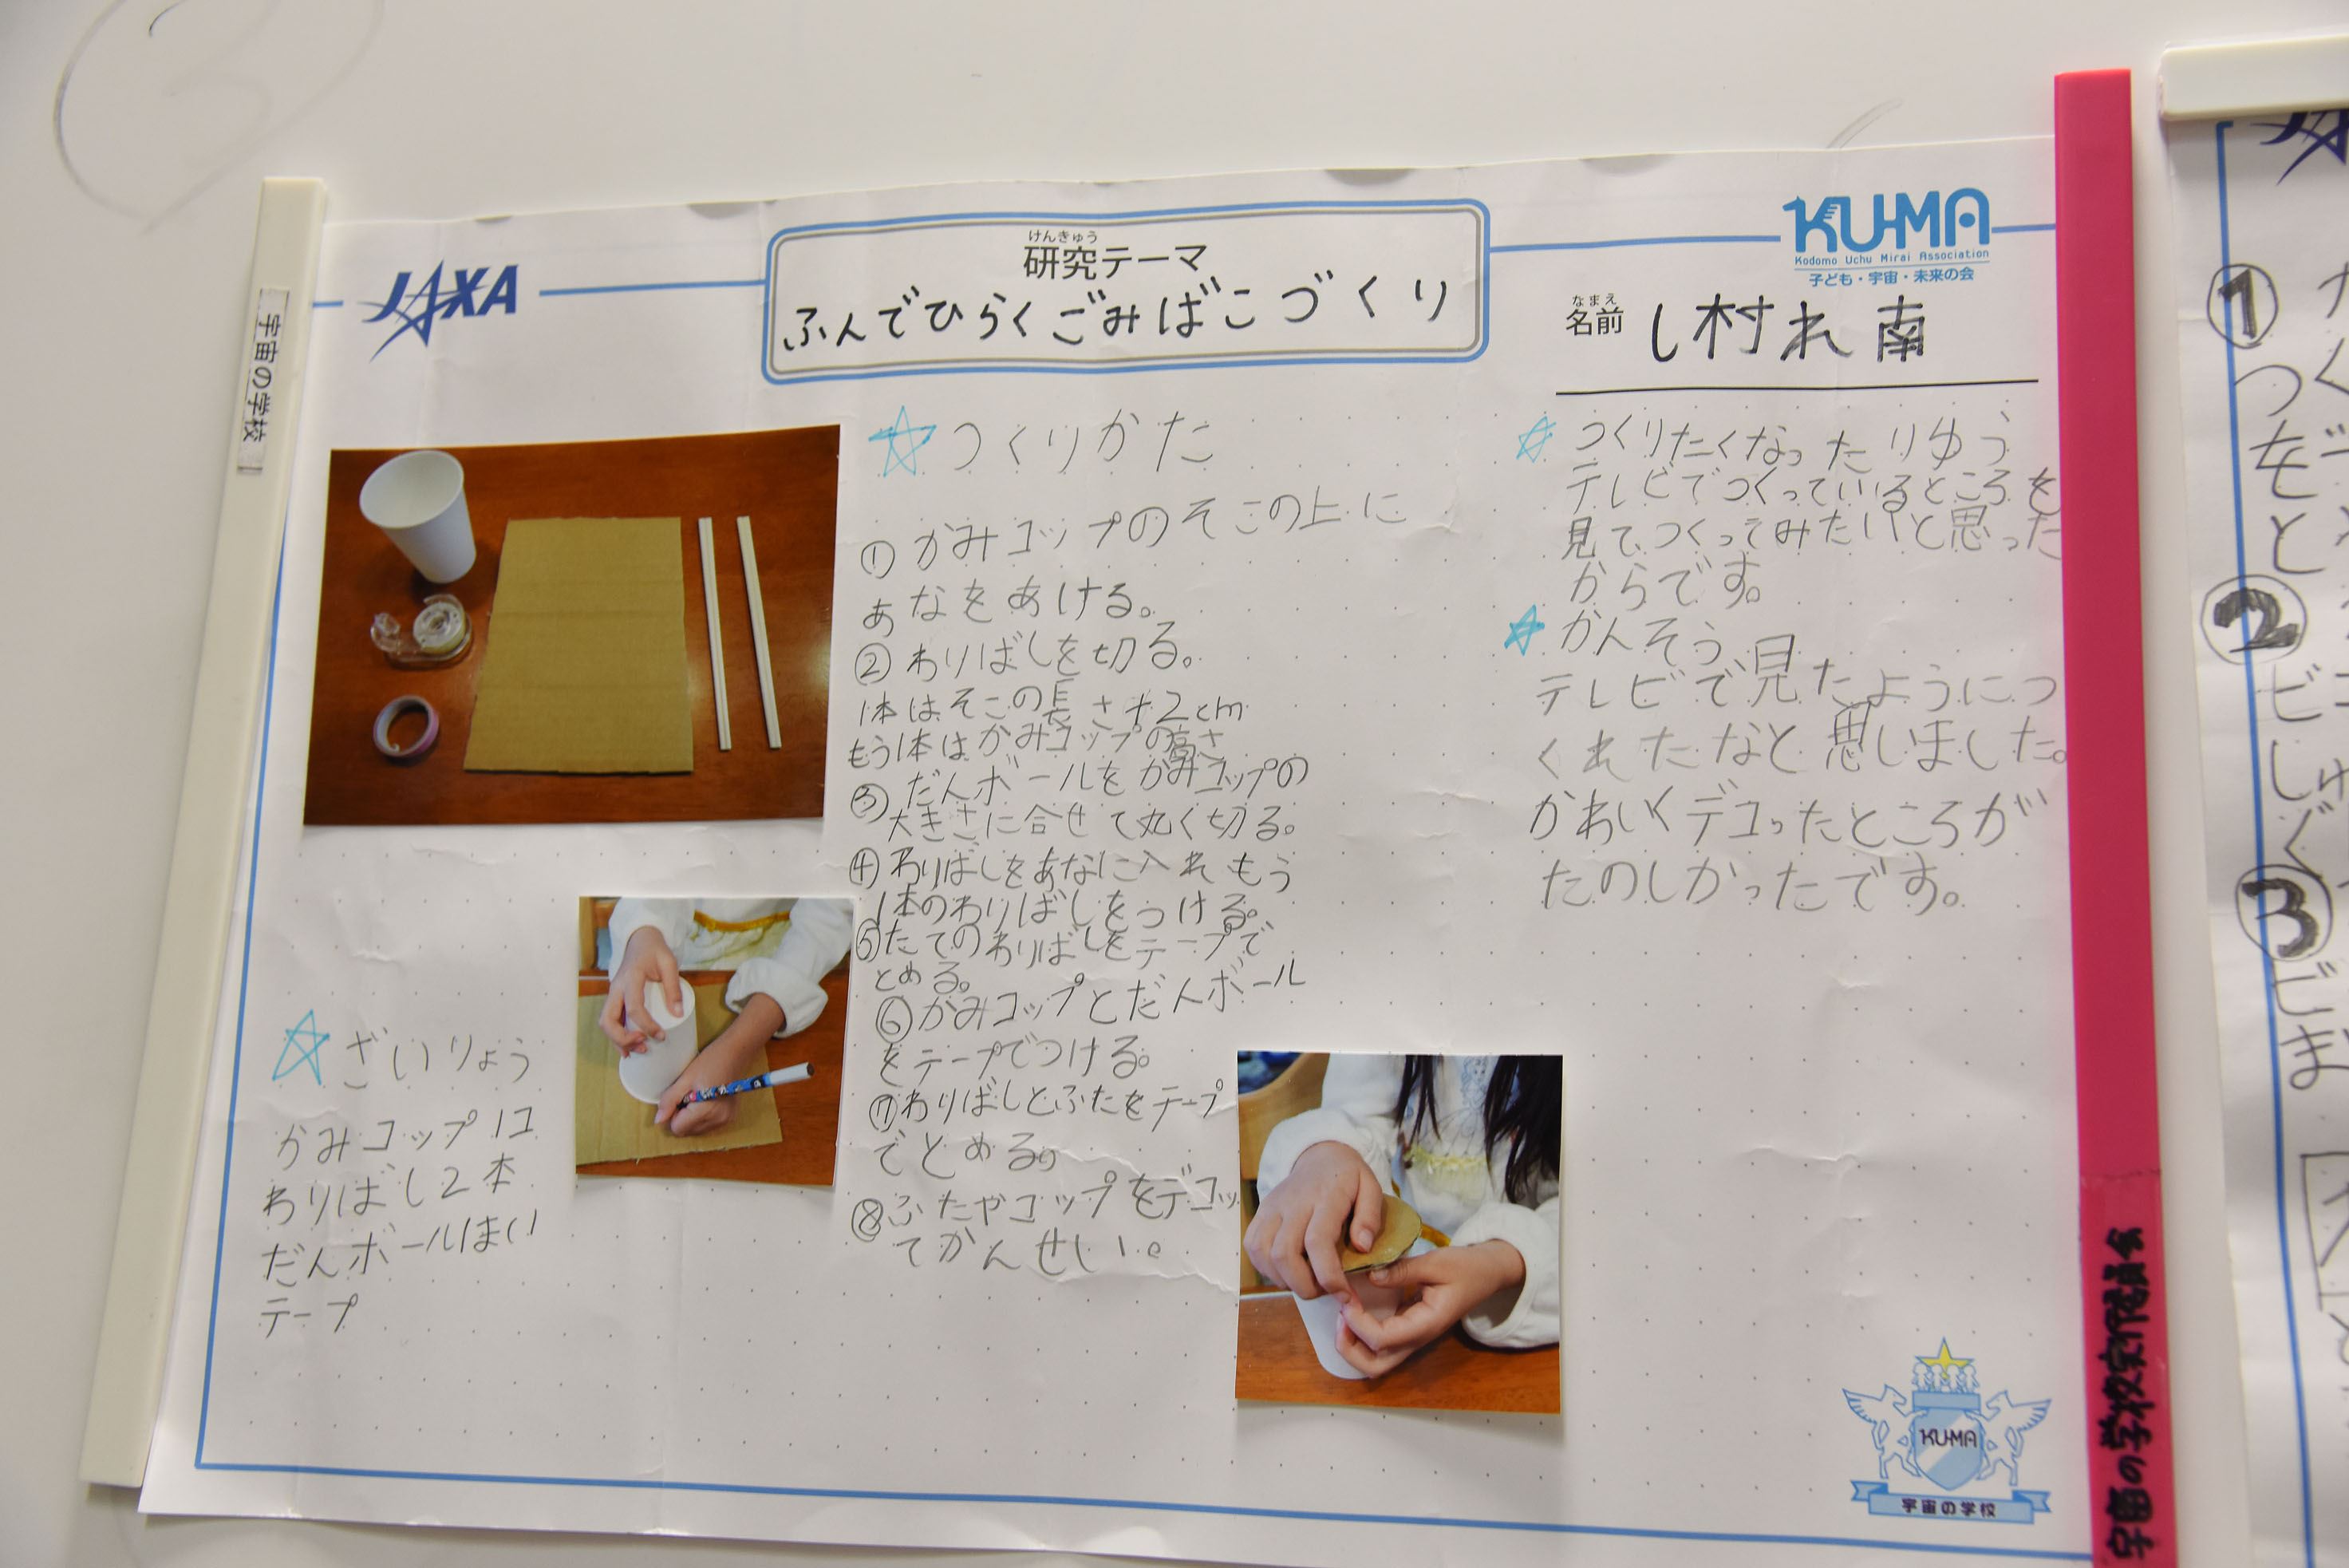 JAXA
けんきゅう
研究テーマ
ふんでひらくごみばこづくり
KU-MA
Kodomo Uchu Mirai Association
子ども・宇宙・未来の会
なまえ
名前 し村れ南
宇宙の学校
☆ざいりょう
かみコップ1コ
わりばし2本
だんボールはい
テープ
☆つくりかた
①かみコップのそこの上に
あなをあける。
②わりばしを切る。
1本はそこの長さ+2cm
もう1本はかみコップの高さ
③だんボールをかみコップの
大きさに合せて丸く切る。
④わりばしをあなに入れもう
1本のわりばしをつける。
⑤たてのわりばしをテープで
とめる。
⑥かみコップとだんボール
をテープでつける。
⑦わりばしとふたをテープ
でとめる。
⑧ふたやコップをデコッ
てかんせい。
☆つくりたくなったりゆう
テレビでつくっているところを
見て、つくってみたいと思った
からです。
☆かんそう
テレビで見たようにつ
くれたなと思いました。
かわいくデコったところが
たのしかったです。
KU-MA
宇宙の学校
宇宙の学校実行委員会
①
つ
を
と
②
ビ
し
③
ビ
ま